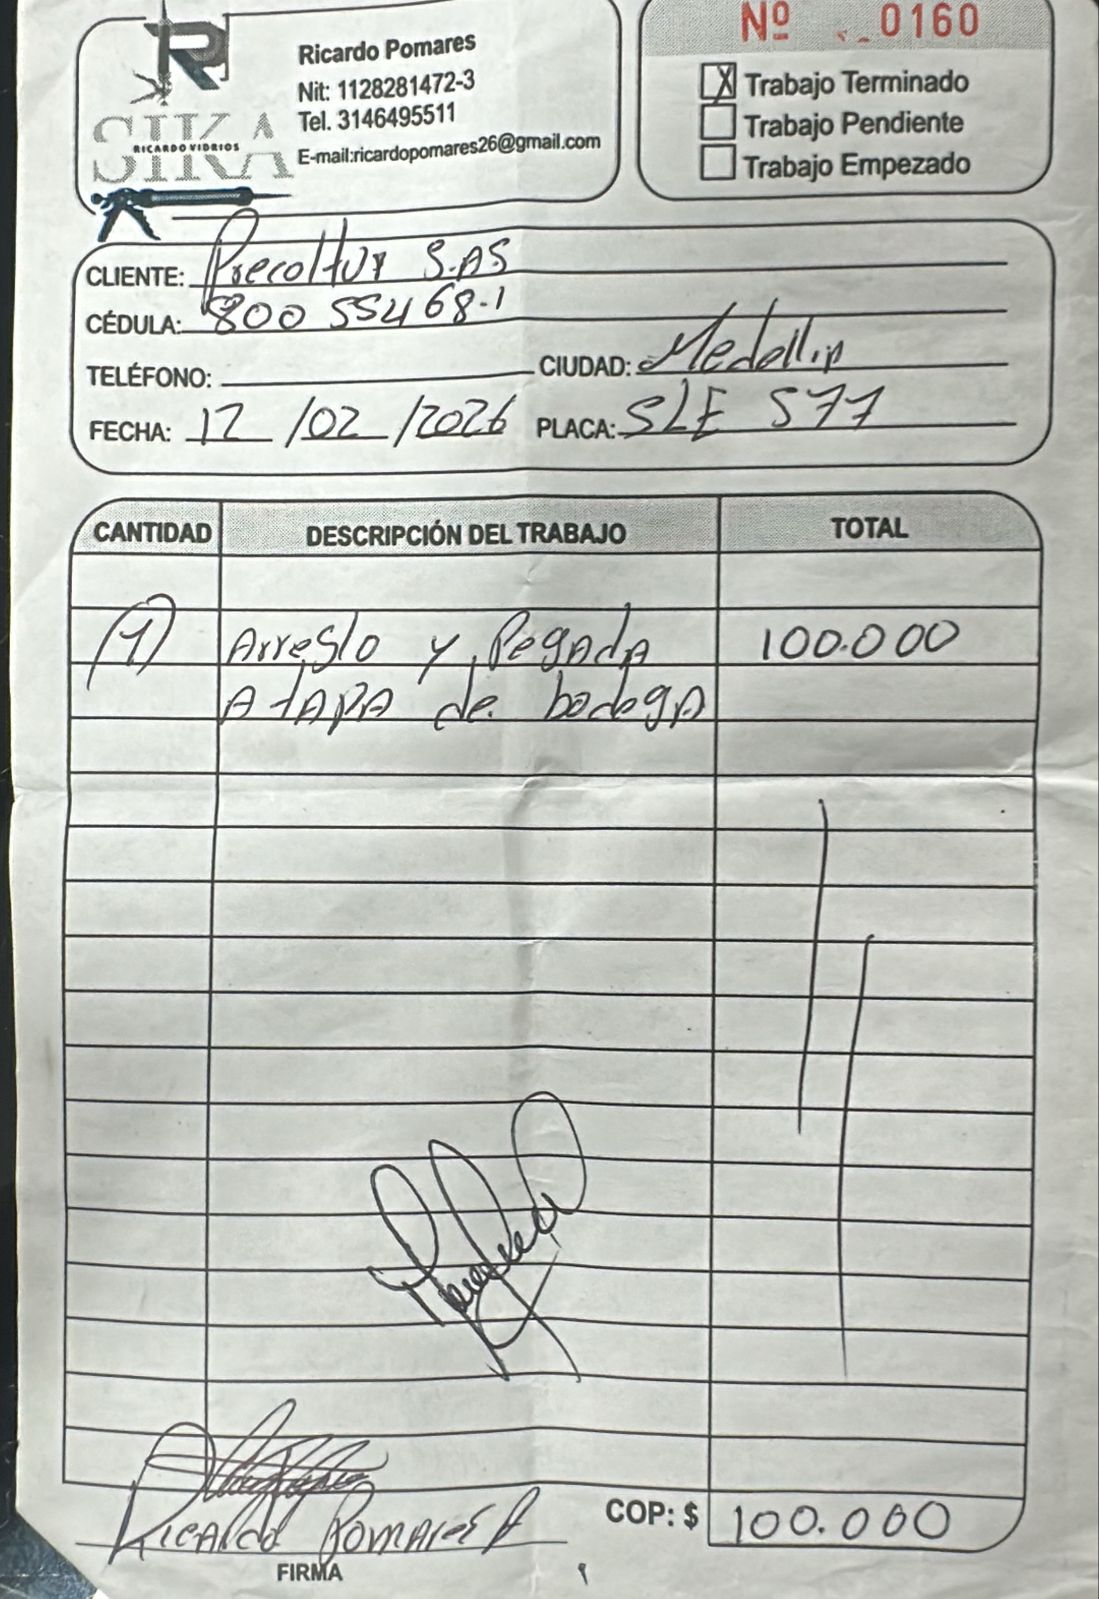 Nº 0160
Ricardo Pomares
Nit: 1128281472-3
Tel. 3146495511
E-mail:ricardopomares26@gmail.com
R
SIKA
RICARDO VIDRIOS
X Trabajo Terminado
Trabajo Pendiente
Trabajo Empezado
CLIENTE: Precoltur S.AS
CÉDULA: 800 55468-1
TELÉFONO: CIUDAD: Medellin
FECHA: 12 /02 /2026 PLACA: SLE 577
CANTIDAD DESCRIPCIÓN DEL TRABAJO TOTAL
(1) Arreglo y Pegada 100.000
A tapa de bodega
COP: $ 100.000
Ricardo Pomares
FIRMA